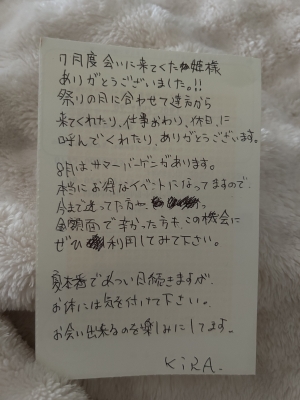 7月度会いに来てくた姫様
ありがとうございました。!!
祭りの月に合わせて遠方から
来てくれたり、仕事おわり、休日に
呼んでくれたり、ありがとうございます。
8月はサマーバーゲンがあります。
本当にお得なイベントになってますので、
今まで迷ってた方や、
金額面で辛かった方も、この機会に
ぜひ利用してみて下さい。
夏本番であつい日続きますが、
お体には気を付けて下さい。
お会い出来るのを楽しみにしてます。
KiRA.